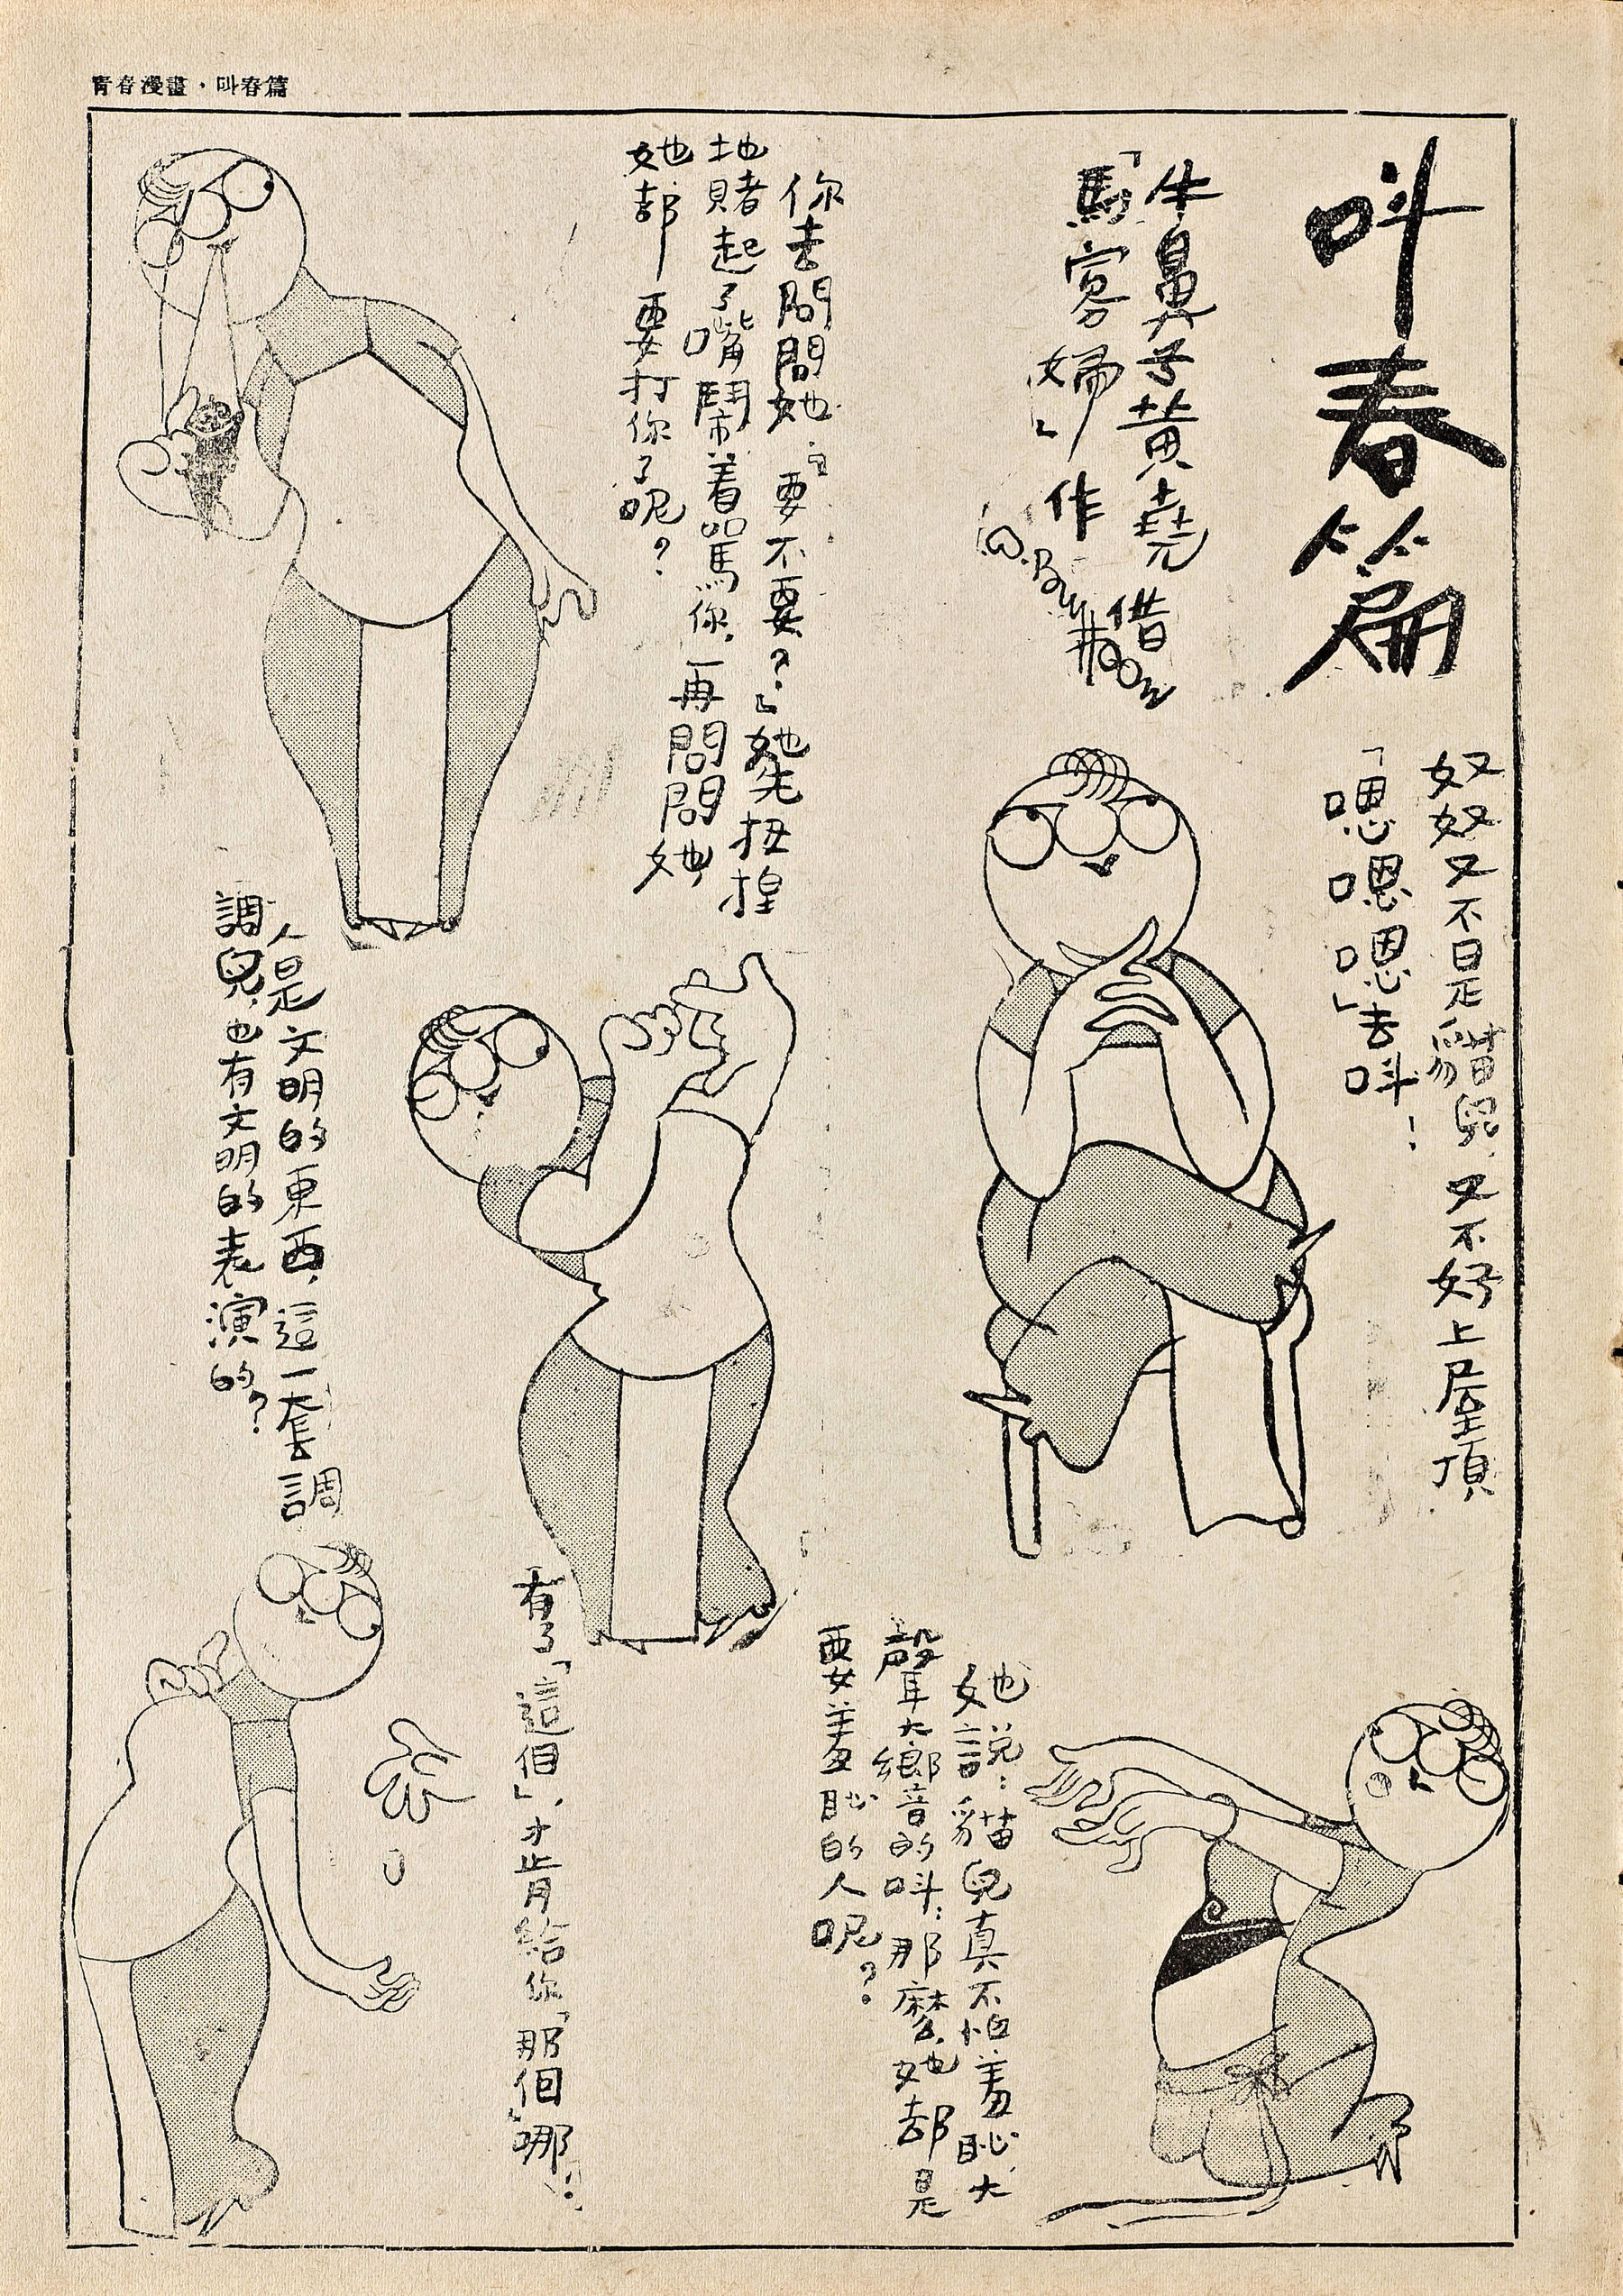 青春漫畫・叫春篇
叫春篇
牛鼻子黃堯 借
「馬寡婦」作
奴奴又不是貓兒，又不好上屋頂
「嗯嗯嗯」去叫！
她說：貓兒真不怕羞恥，大
聲大嚮音的叫；那麽，她却是
要羞恥的人呢？
你去問問她：「要不要？」她先扭捏
地賭起了嘴鬧着罵你，再問問她
她却一要打你了呢？
人是文明的東西，這一套調
調兒，也有文明的表演的？
有了「這個」，才肯給你「那個」哪！